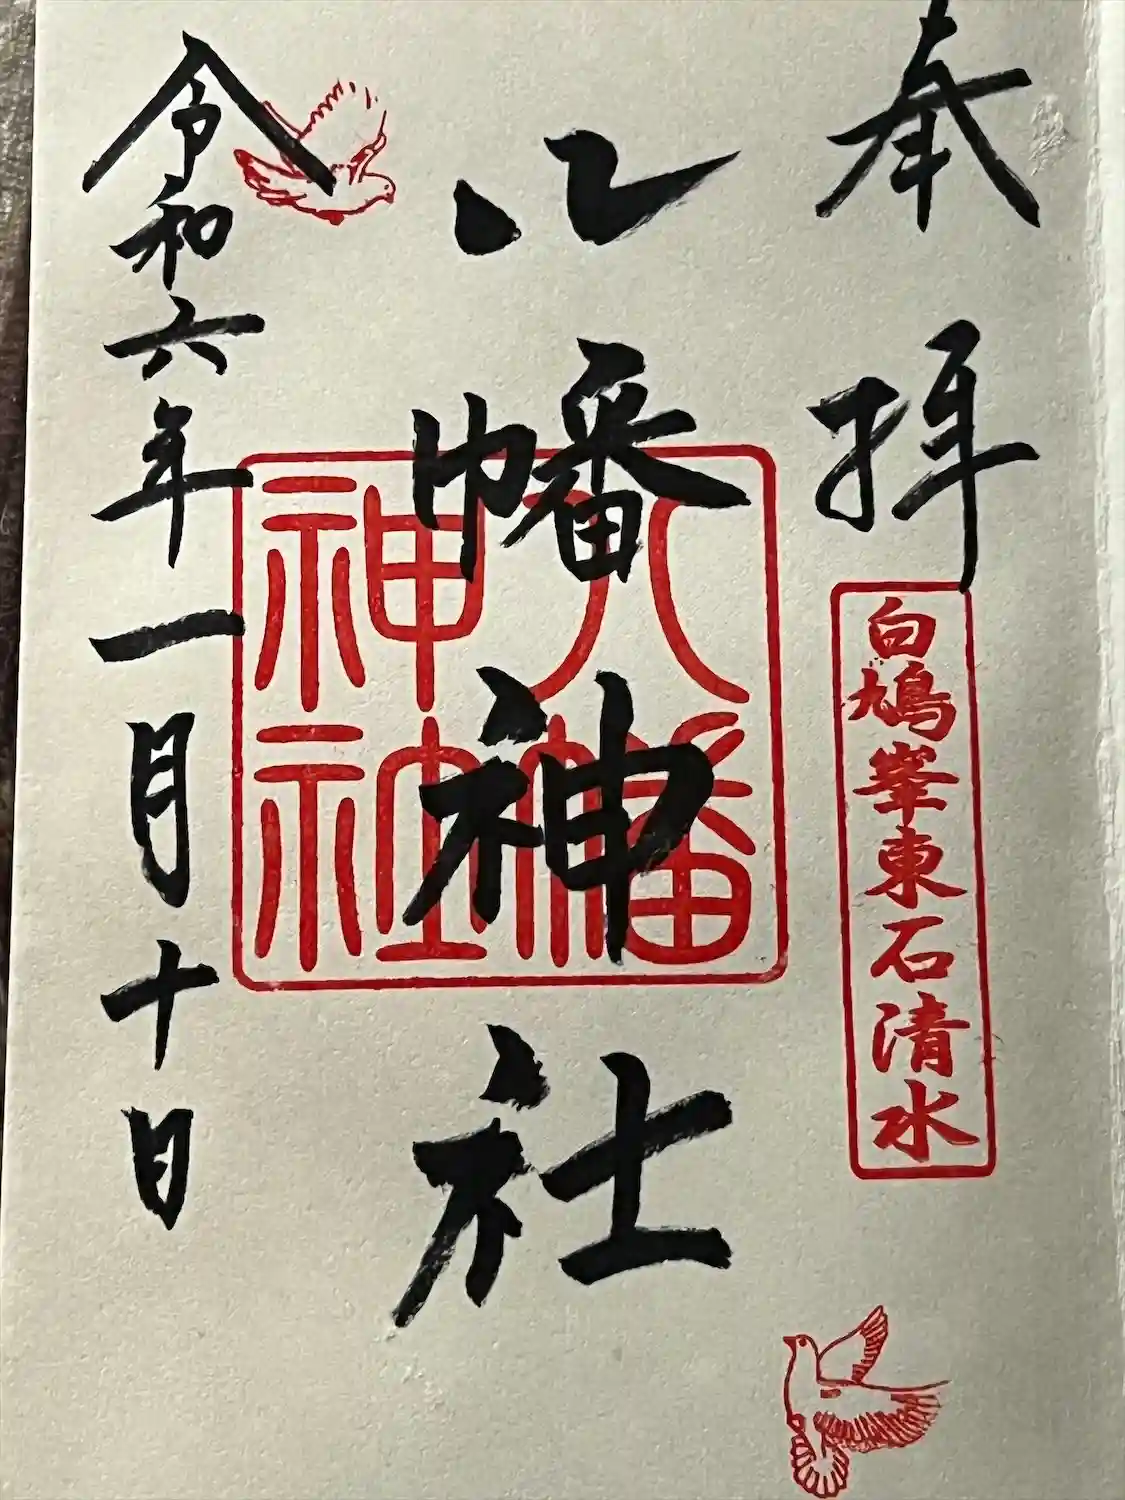 奉拝
白鳩峯東石清水
八幡神社
八幡神社
令和六年一月十日